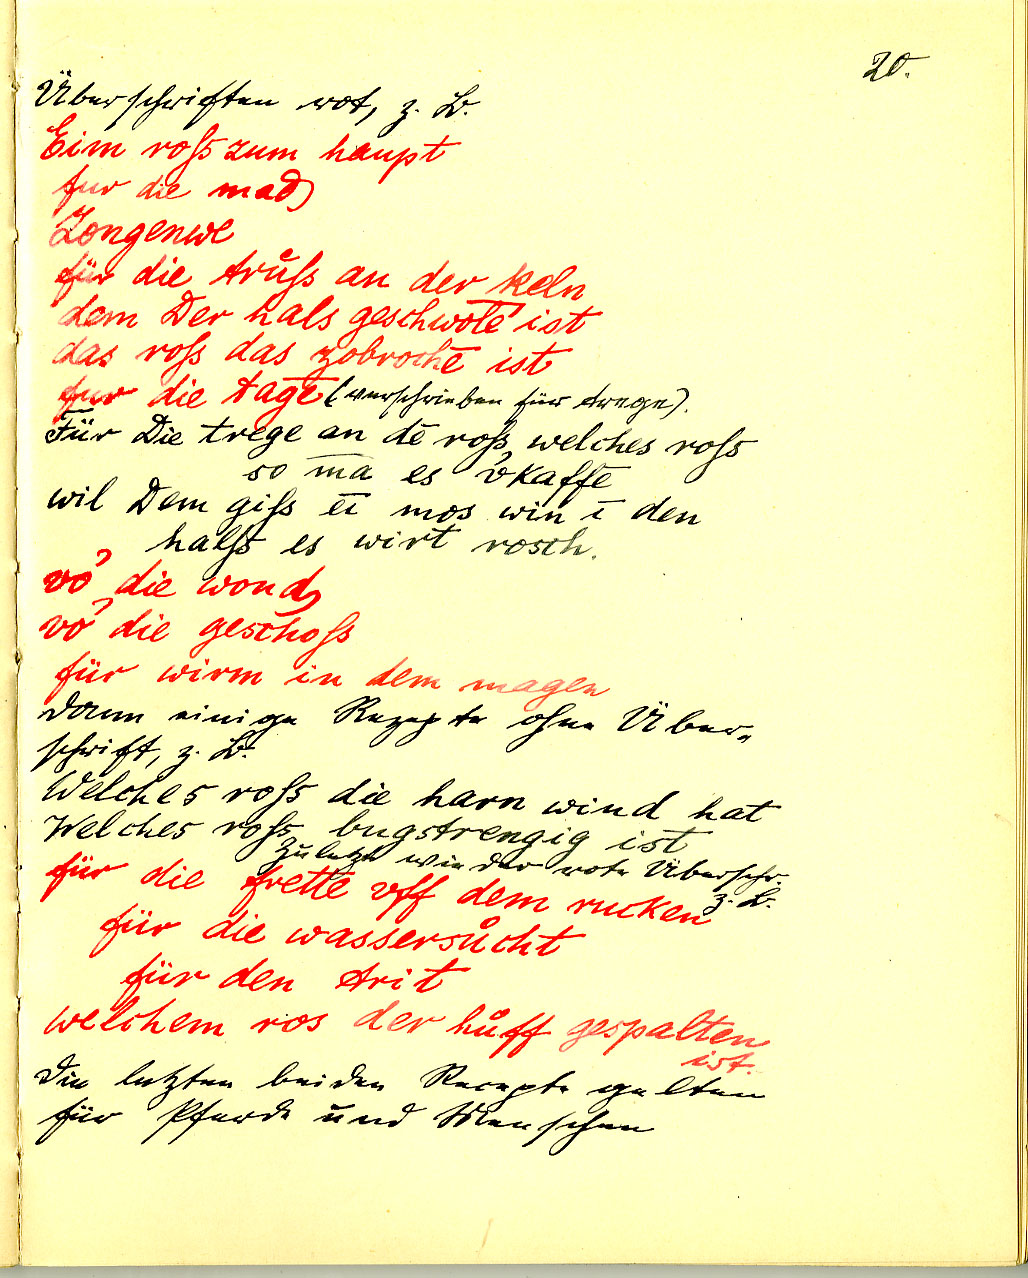 20.
Überschriften rot, z. B.
Eim roß zum haupt
fur die mad
Zongenwe
für die trůß an der keln
dem Der hals geschwolē ist
das roß das zobrochē ist
fur die tagē (verschrieben für trege).
Für Die trege an dē roß, welches roß
so mā es v̓kaffē
wil Dem giß eī mos win ī den
halß es wirt rosch.
vo̓ die wond
vo̓ die geschoß
für wirm in dem magen
dann einige Rezepte ohne Über-
schrift, z. B.
Welches roß die harn wind hat
Welches roß bugstrengig ist
Zuletzt wieder rote Überschr.
z. B.
für die frette vff dem rucken
für die wassersůcht
für den trit
welchem ros der hůff gespalten
ist.
Die letzten beiden Recepte gelten
für Pferde und Menschen